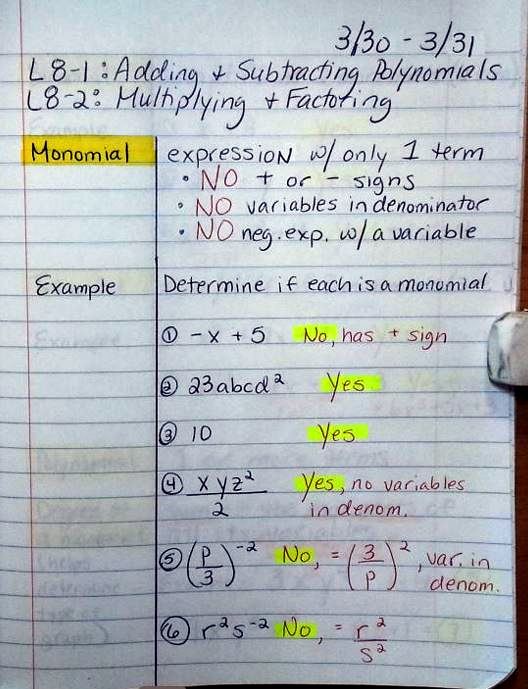 3/30 - 3/31
L 8-1 : Adding + Subtracting Polynomials
L 8-2 : Multiplying + Factoring
Monomial expression w/ only 1 term
• NO + or - signs
• NO variables in denominator
• NO neg. exp. w/ a variable
Example Determine if each is a monomial
① -x + 5 No, has + sign
② 23abcd² Yes
③ 10 Yes
④ xyz²/2 Yes, no variables
in denom.
⑤ (p/3)⁻² No, = (3/p)², var. in
denom.
⑥ r²s⁻² No, = r²/s²